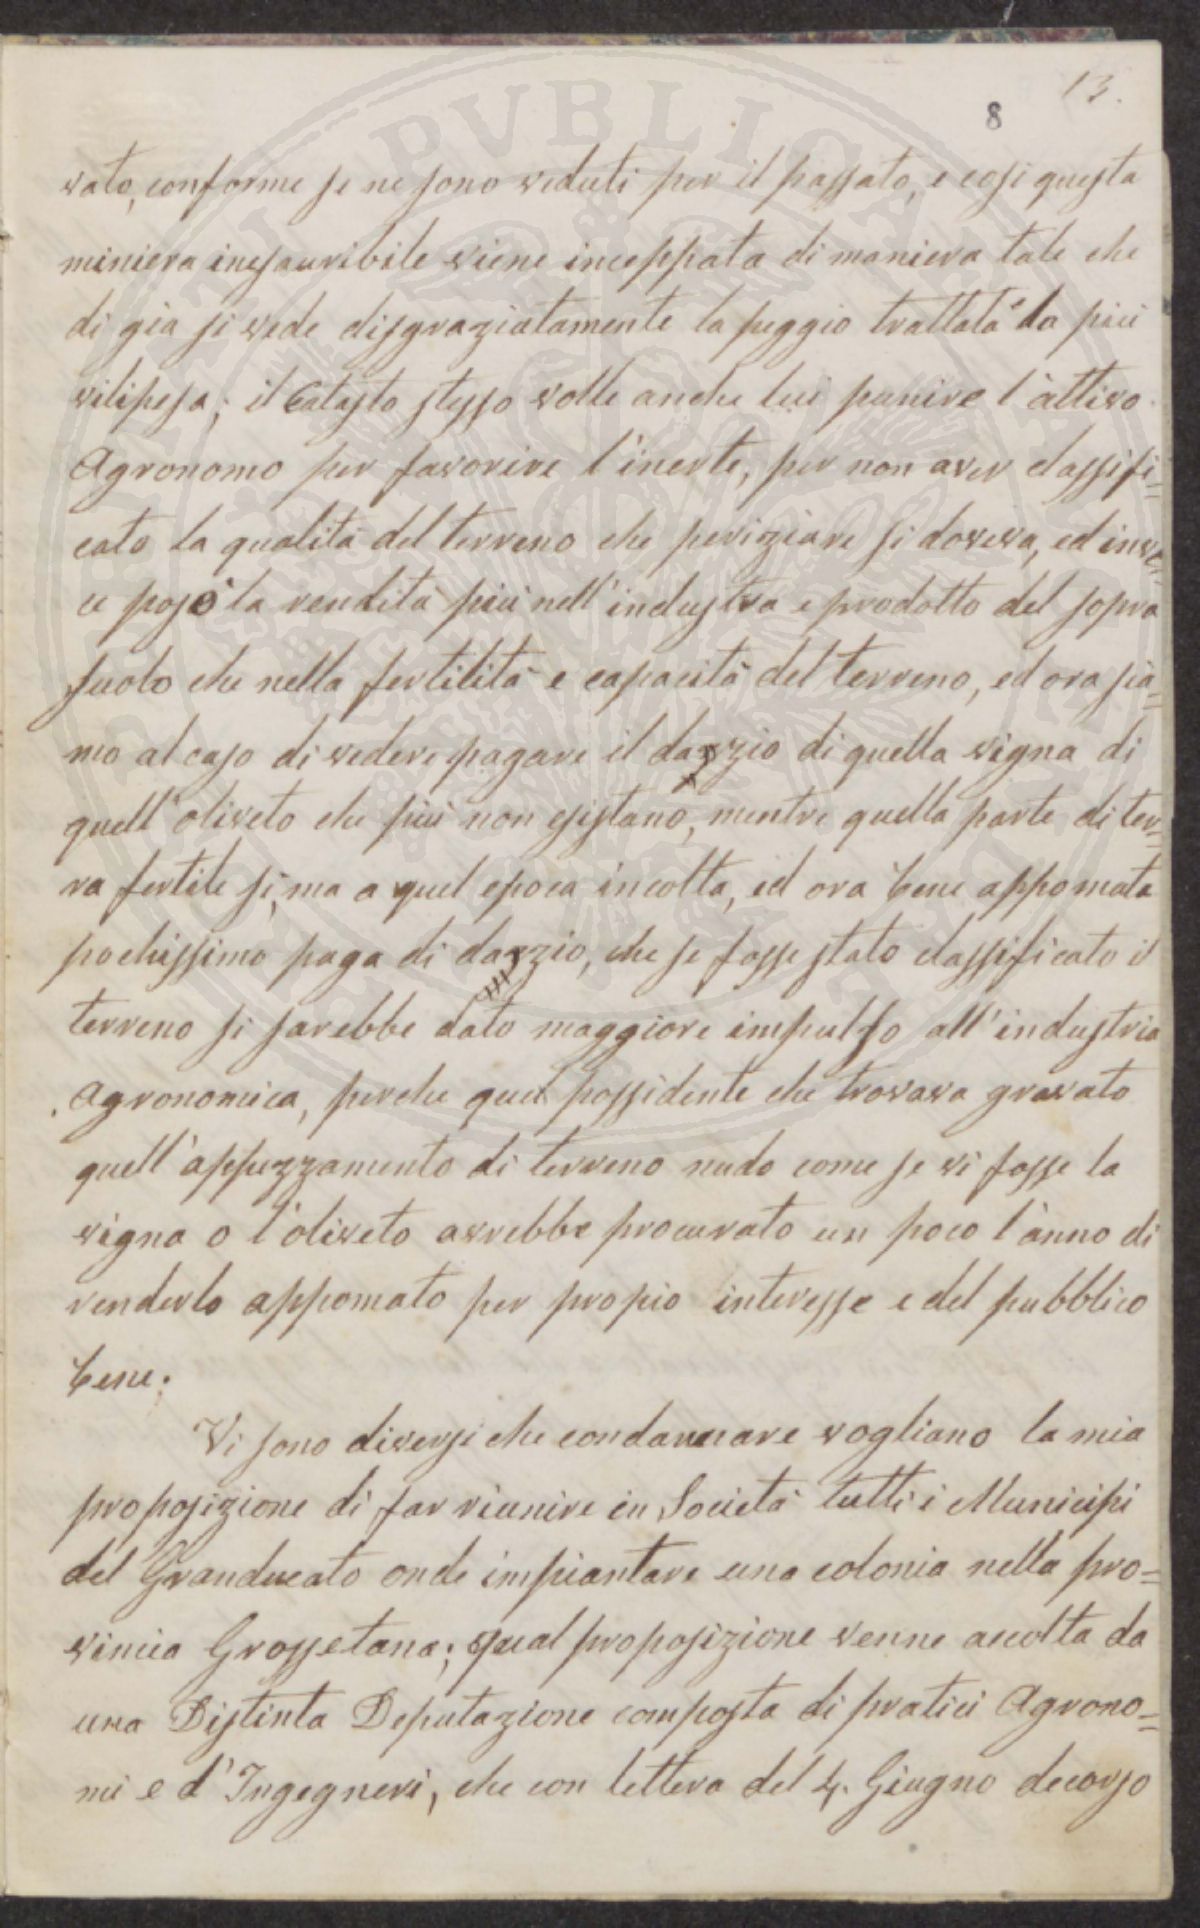 13.
8
vato, conforme se ne sono veduti per il passato, e così questa
miniera inesauribile viene inceppata di maniera tale che
di già si vede disgraziatamente la peggio trattata la più
vilipesa; il Catasto stesso volle anche lui punire l'attivo
Agronomo per favorire l'inerte, per non aver classifi=
cato la qualità del terreno che periziare si doveva, ed inve=
ce posò la rendita più nell'industra e prodotto del sopra
suolo che nella fertilità e capacità del terreno, ed ora sia=
mo al caso di vedere pagare il dazzio di quella vigna di
quell'oliveto che più non esistano, mentre quella parte di ter=
ra fertile si, ma a quel epoca incolta, ed ora bene appomata
pochissimo paga di dazzio, che se fosse stato classificato il
terreno si sarebbe dato maggiore impulso all'industria
Agronomica, perche quel possidente che trovava gravato
quell'appezzamento di terreno nudo come se vi fosse la
vigna o l'oliveto avrebbe procurato un poco l'anno di
renderlo appomato per propio interesse e del pubblico
bene.
Vi sono diversi che condannare vogliano la mia
proposizione di far riunire in Società tutti i Municipi
del Granducato onde impiantare una colonia nella pro=
vincia Grossetana; qual proposizione venne accolta da
una Distinta Deputazione composta di pratici Agrono=
mi e d'Ingegneri, che con lettera del 4. Giugno decorso
PVBLICA